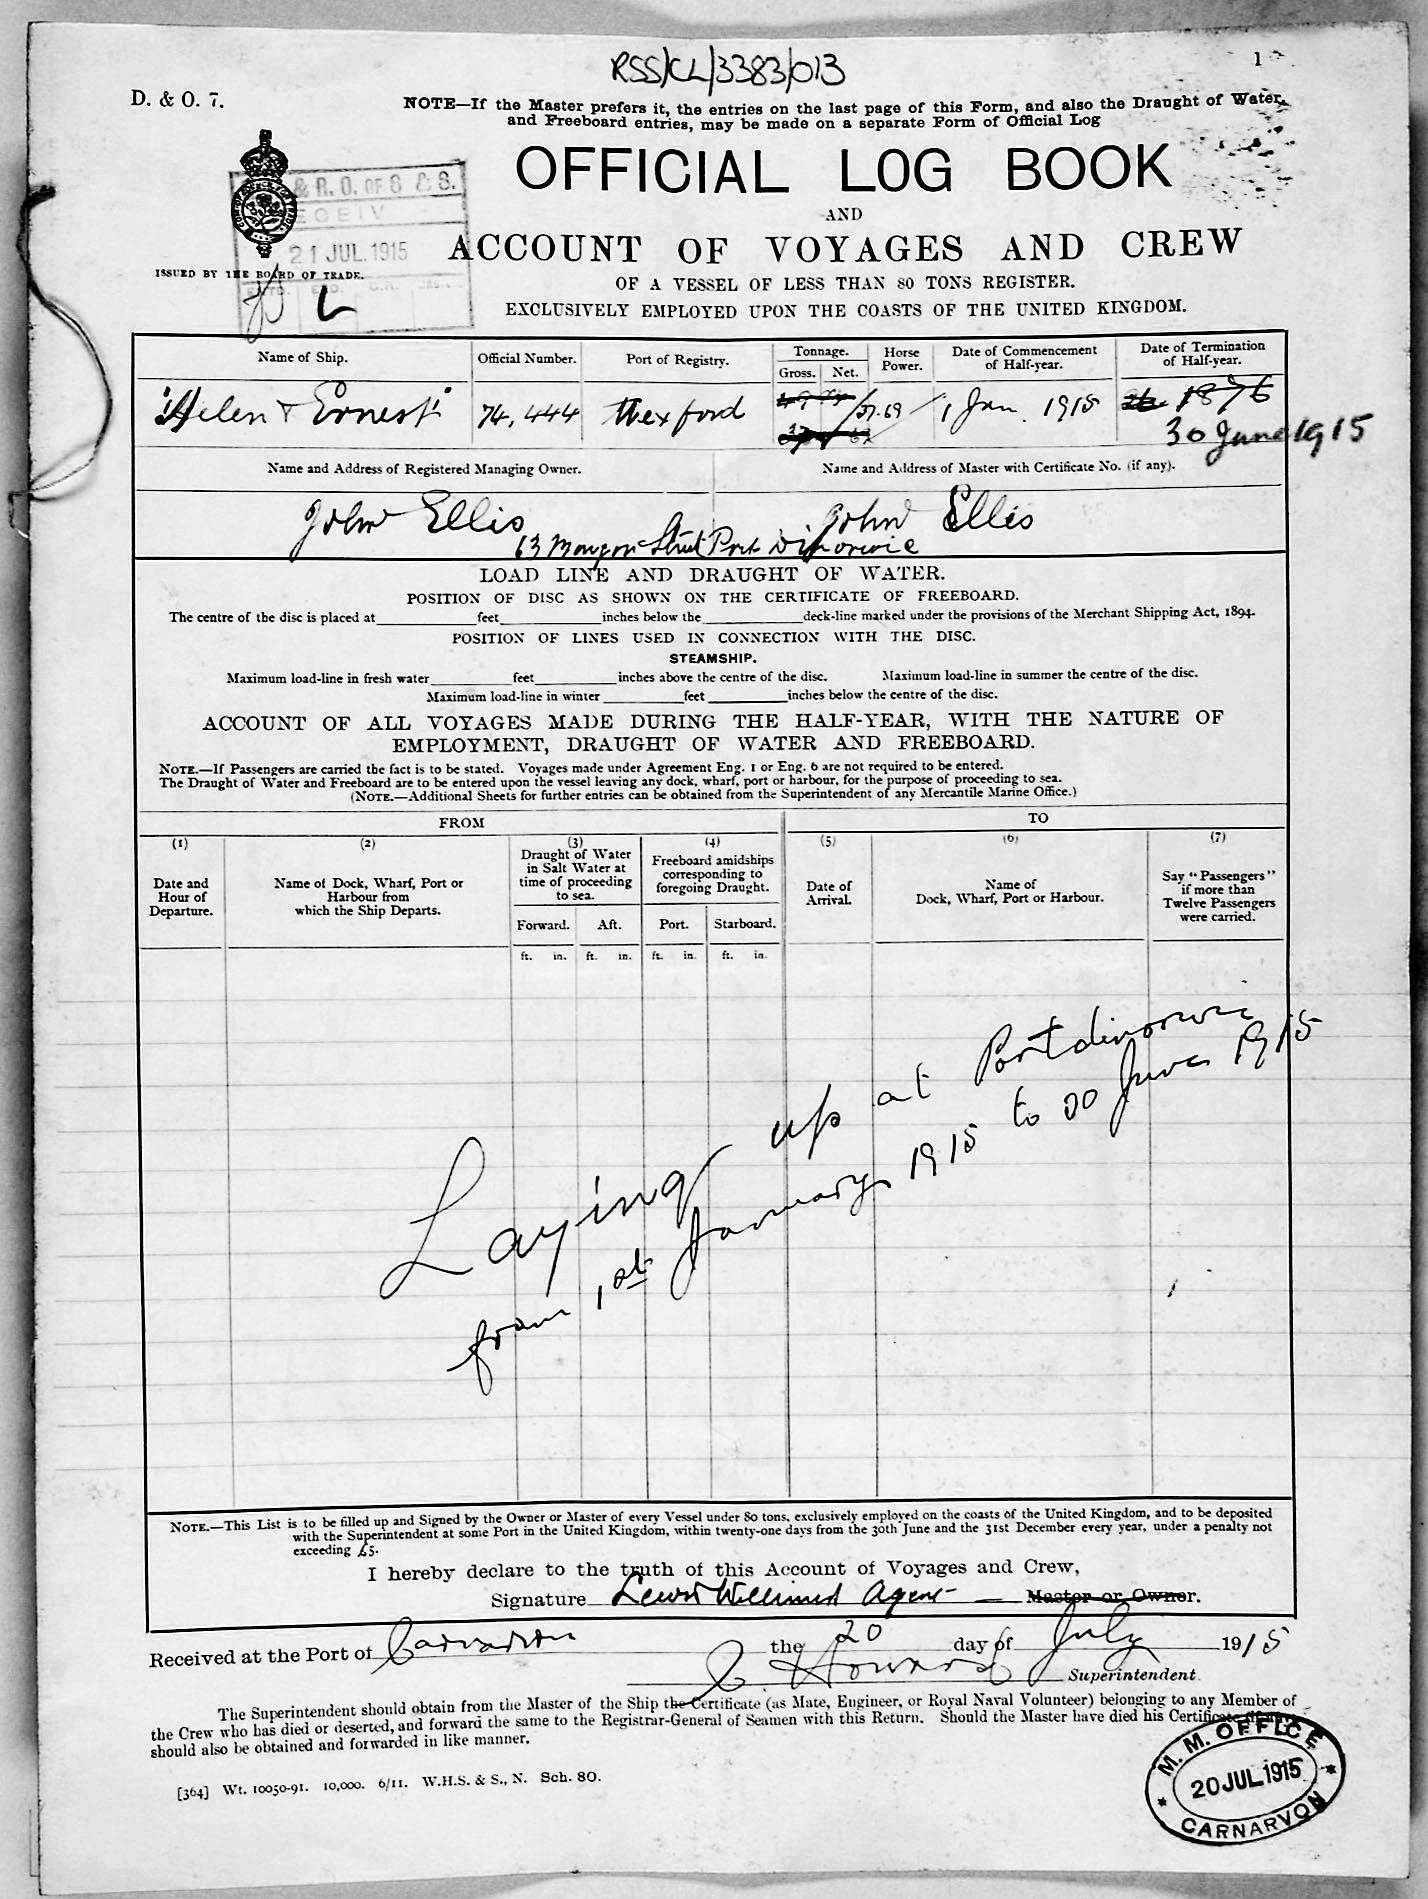 RSS/CL/3383/013
1
D. & O. 7.
NOTE—If the Master prefers it, the entries on the last page of this Form, and also the Draught of Water,
and Freeboard entries, may be made on a separate Form of Official Log
OFFICIAL LOG BOOK
& R. O. OF S & S.
21 JUL. 1915
L
ISSUED BY THE BOARD OF TRADE.
AND
ACCOUNT OF VOYAGES AND CREW
OF A VESSEL OF LESS THAN 80 TONS REGISTER.
EXCLUSIVELY EMPLOYED UPON THE COASTS OF THE UNITED KINGDOM.
Name of Ship. Official Number. Port of Registry. Tonnage. Gross. Net. Horse Power. Date of Commencement of Half-year. Date of Termination of Half-year.
"Helen & Ernest" 74,444 Wexford 37.69 1 Jan. 1915 1876
30 June 1915
Name and Address of Registered Managing Owner. Name and Address of Master with Certificate No. (if any).
John Ellis John Ellis
63 Street Port Dinorwic
LOAD LINE AND DRAUGHT OF WATER.
POSITION OF DISC AS SHOWN ON THE CERTIFICATE OF FREEBOARD.
The centre of the disc is placed at feet inches below the deck-line marked under the provisions of the Merchant Shipping Act, 1894.
POSITION OF LINES USED IN CONNECTION WITH THE DISC.
STEAMSHIP.
Maximum load-line in fresh water feet inches above the centre of the disc. Maximum load-line in summer the centre of the disc.
Maximum load-line in winter feet inches below the centre of the disc.
ACCOUNT OF ALL VOYAGES MADE DURING THE HALF-YEAR, WITH THE NATURE OF
EMPLOYMENT, DRAUGHT OF WATER AND FREEBOARD.
NOTE.—If Passengers are carried the fact is to be stated. Voyages made under Agreement Eng. 1 or Eng. 6 are not required to be entered.
The Draught of Water and Freeboard are to be entered upon the vessel leaving any dock, wharf, port or harbour, for the purpose of proceeding to sea.
(NOTE.—Additional Sheets for further entries can be obtained from the Superintendent of any Mercantile Marine Office.)
FROM TO
(1) (2) (3) (4) (5) (6) (7)
Date and Hour of Departure.
Name of Dock, Wharf, Port or Harbour from which the Ship Departs.
Draught of Water in Salt Water at time of proceeding to sea.
Freeboard amidships corresponding to foregoing Draught.
Date of Arrival.
Name of Dock, Wharf, Port or Harbour.
Say "Passengers" if more than Twelve Passengers were carried.
Forward. Aft. Port. Starboard.
ft. in. ft. in. ft. in. ft. in.
Laying up at Portdinorwic
from 1st January 1915 to 30 June 1915
NOTE.—This List is to be filled up and Signed by the Owner or Master of every Vessel under 80 tons, exclusively employed on the coasts of the United Kingdom, and to be deposited
with the Superintendent at some Port in the United Kingdom, within twenty-one days from the 30th June and the 31st December every year, under a penalty not
exceeding £5.
I hereby declare to the truth of this Account of Voyages and Crew,
Signature Lewis Williams Agent — Master or Owner.
Received at the Port of Carnarvon the 20 day of July 1915
C. Howard Superintendent.
The Superintendent should obtain from the Master of the Ship the Certificate (as Mate, Engineer, or Royal Naval Volunteer) belonging to any Member of
the Crew who has died or deserted, and forward the same to the Registrar-General of Seamen with this Return. Should the Master have died his Certificate
should also be obtained and forwarded in like manner.
[364] Wt. 10050-91. 10,000. 6/11. W.H.S. & S., N. Sch. 80.
M. M. OFFICE
20 JUL 1915
CARNARVON